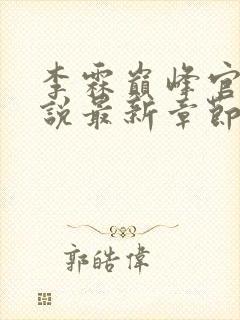 李霖巔峰官
說最新章節
郭皓偉